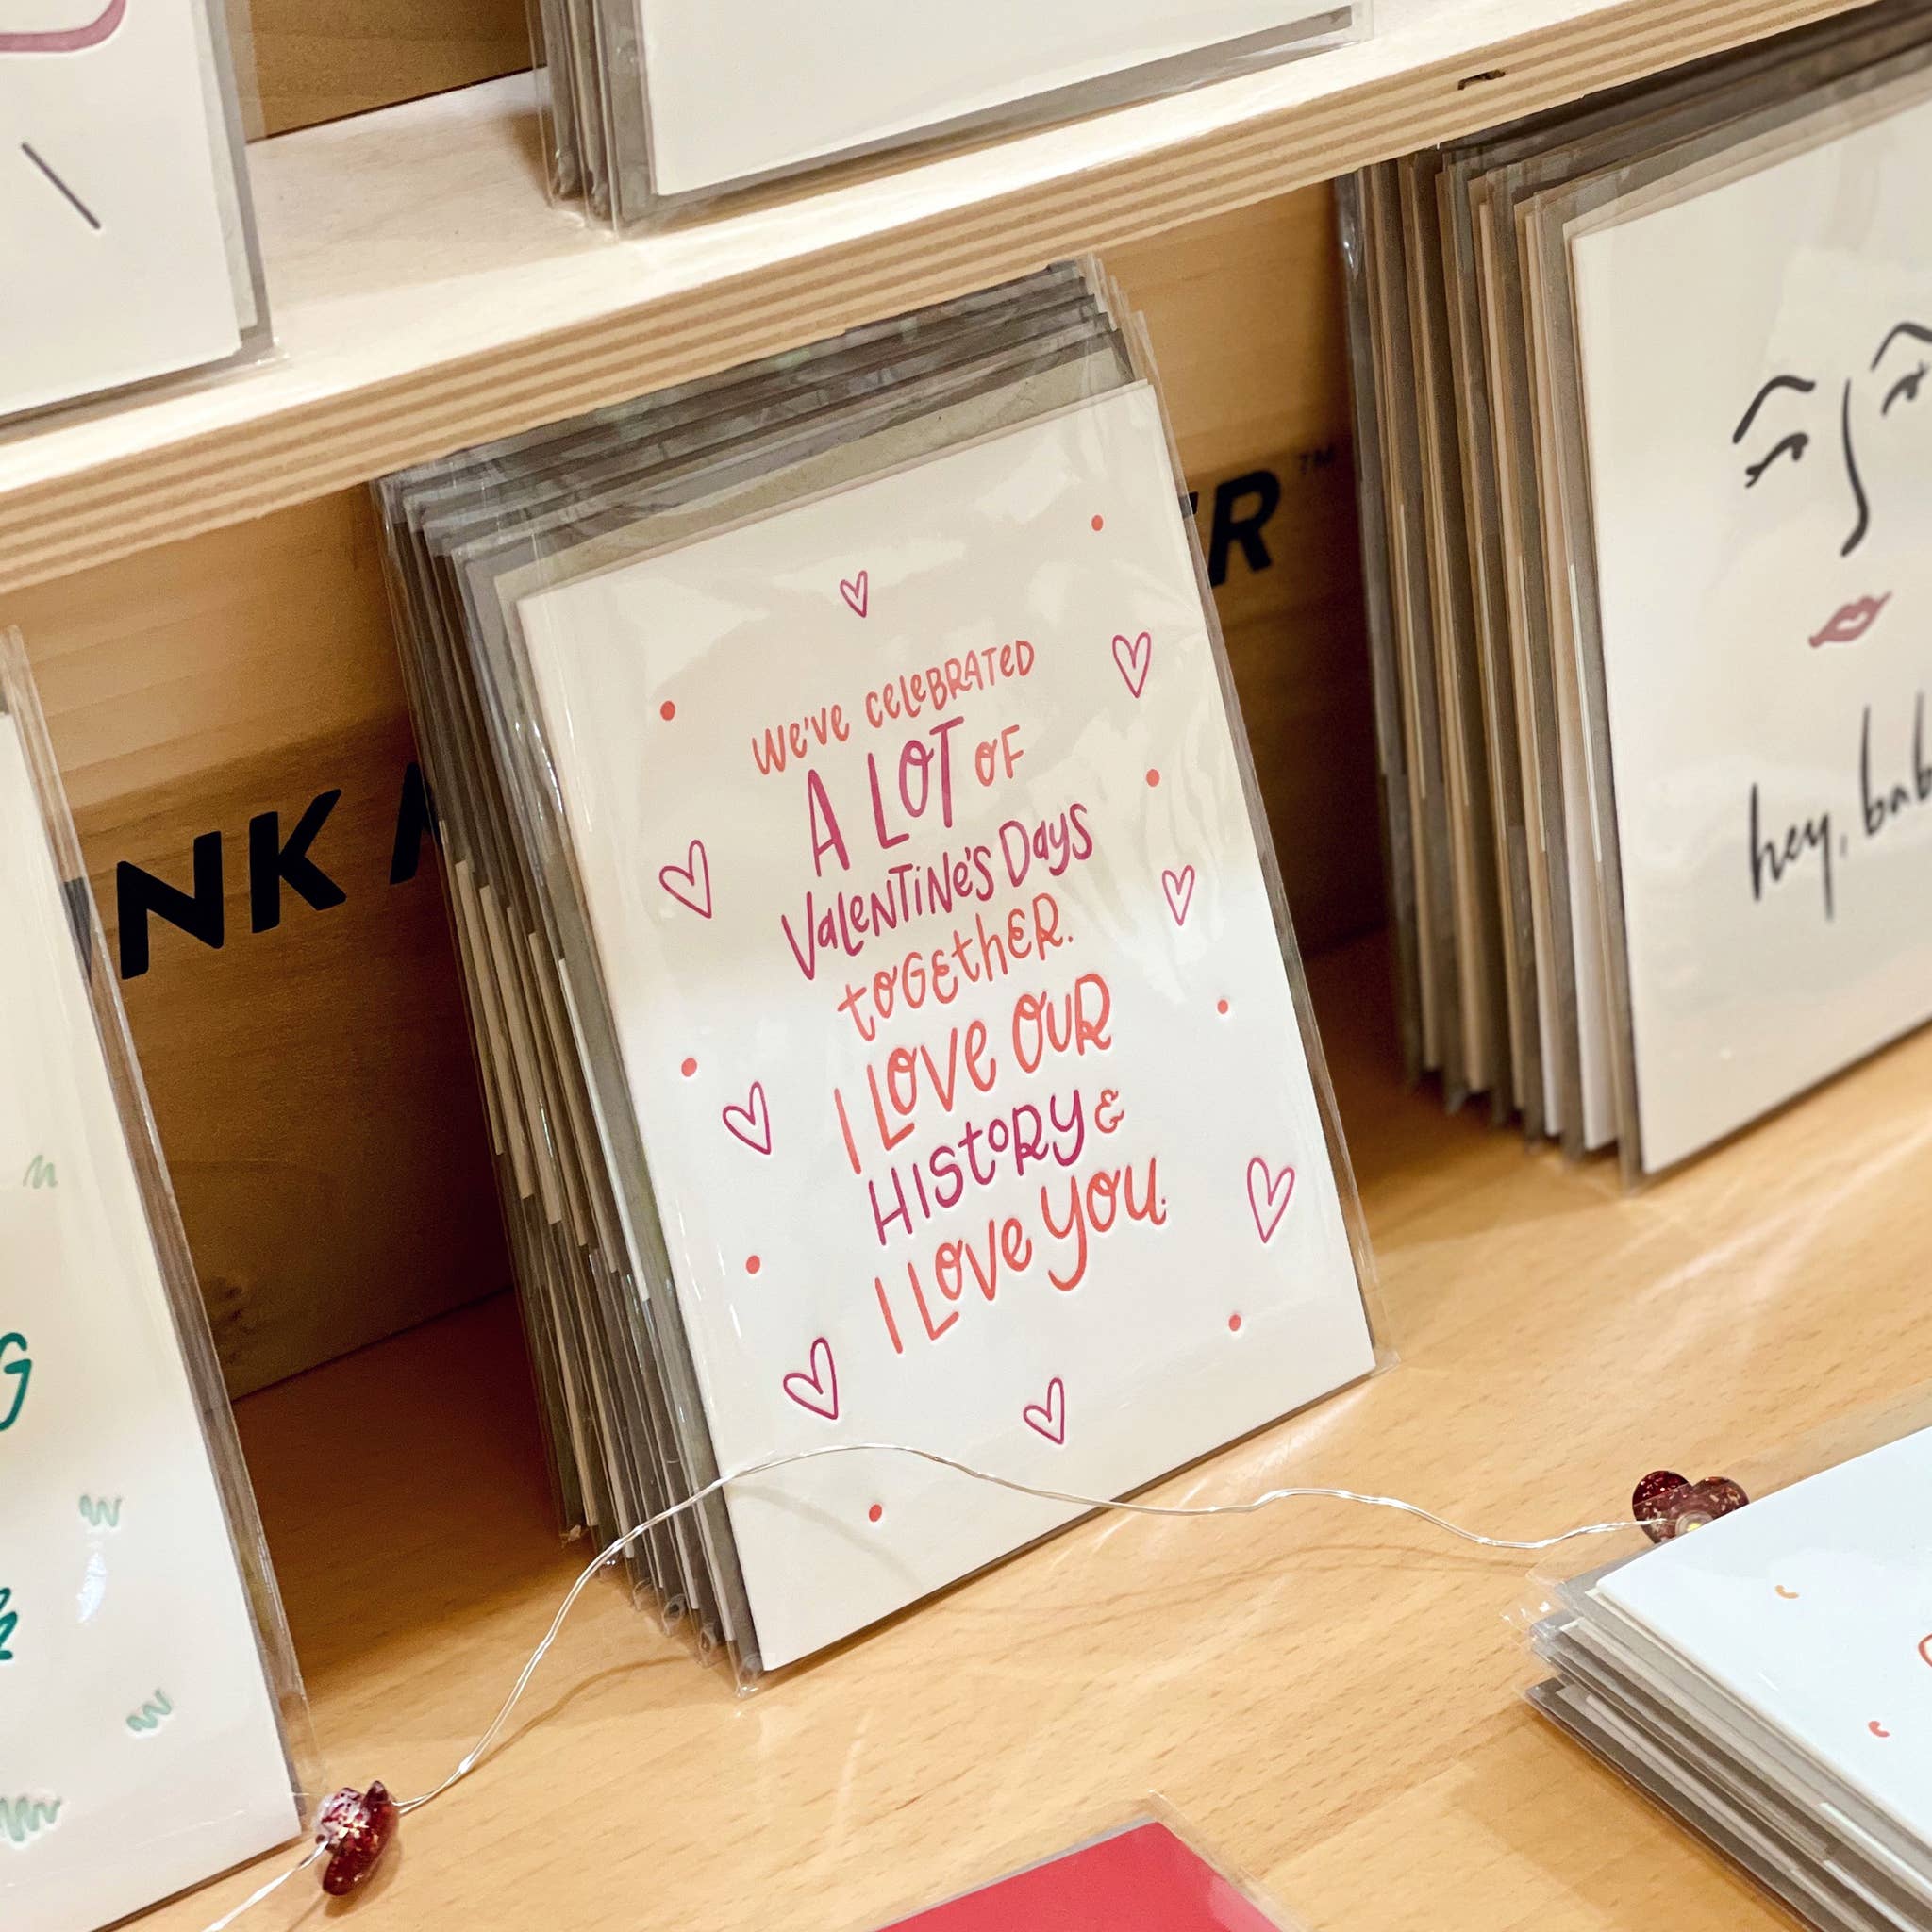 We've celebrated
A LOT of
Valentine's Days
together.
I love our
History &
I love you.
hey, bab
NK
ER™
G